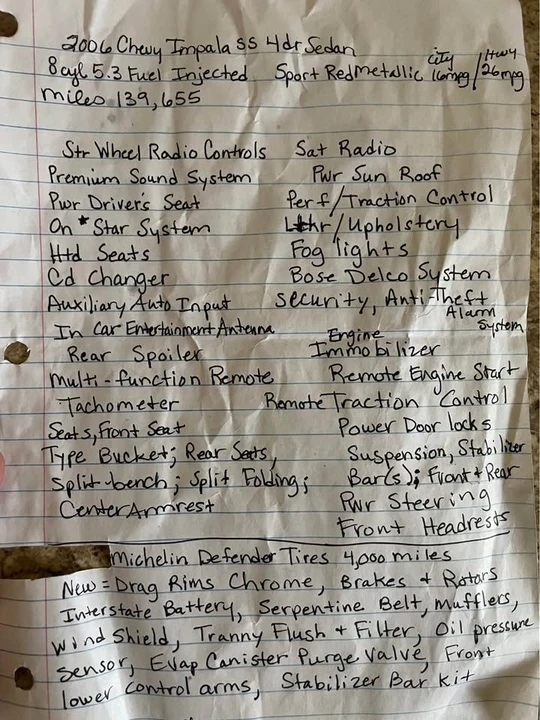 2006 Chevy Impala SS 4dr Sedan
8cyl 5.3 Fuel Injected Sport Red Metallic City 16mpg / Hwy 26mpg
miles 139,655
Str Wheel Radio Controls Sat Radio
Premium Sound System Pwr Sun Roof
Pwr Driver's Seat Perf/Traction Control
On*Star System Lthr/Upholstery
Htd Seats Fog lights
Cd Changer Bose Delco System
Auxiliary Auto Input Security, Anti-Theft Alarm System
In Car Entertainment Antenna Engine
Rear Spoiler Immobilizer
Multi-function Remote Remote Engine Start
Tachometer Remote Traction Control
Seats, Front Seat Power Door locks
Type Bucket; Rear Seats, Suspension, Stabilizer
Split-bench; Split Folding; Bar(s); Front + Rear
Center Armrest Pwr Steering
Front Headrests
Michelin Defender Tires 4,000 miles
New = Drag Rims Chrome, Brakes + Rotars
Interstate Battery, Serpentine Belt, Mufflers,
Wind Shield, Tranny Flush + Filter, Oil pressure
sensor, Evap Canister Purge Valve, Front
lower control arms, Stabilizer Bar kit